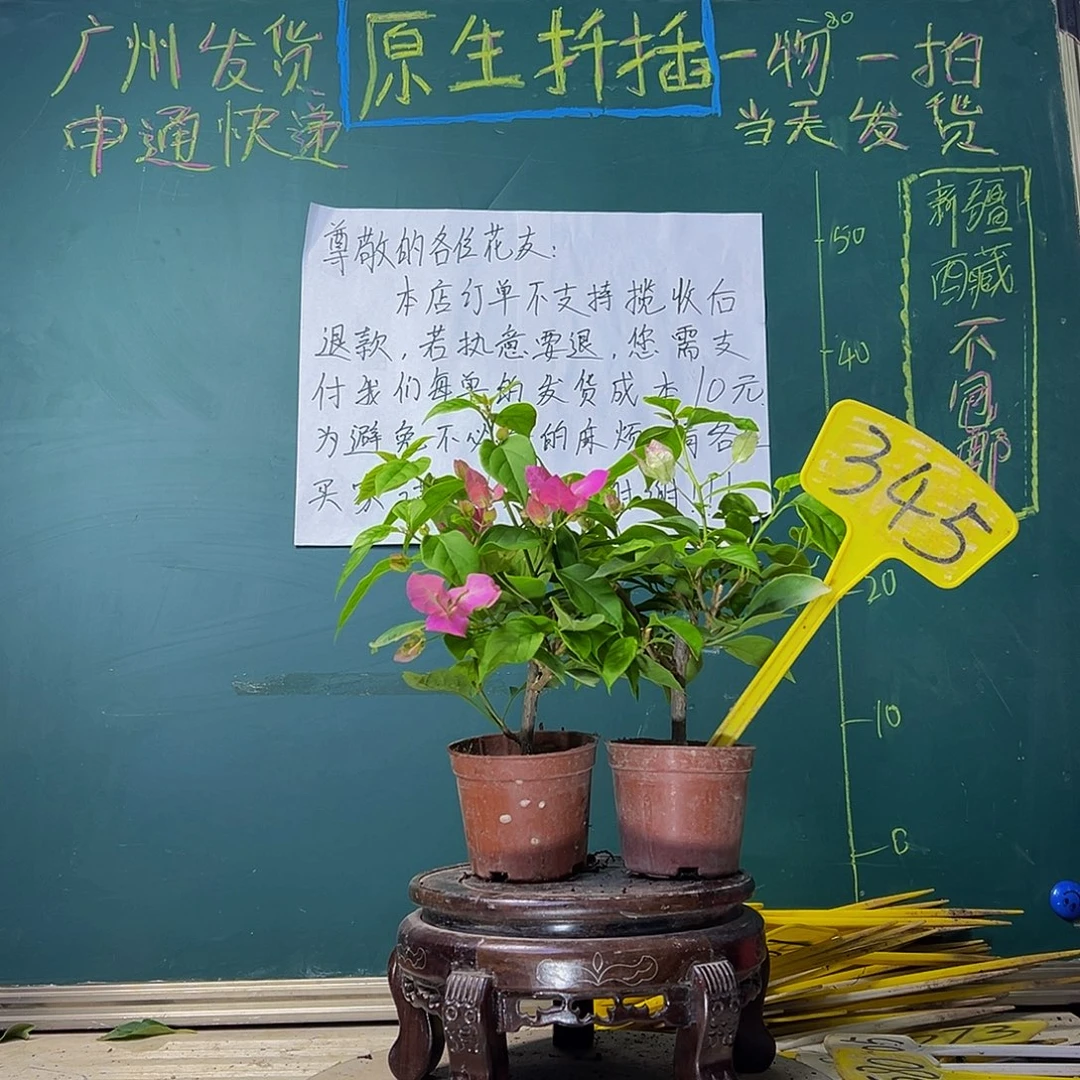 广州发货
申通快递
原生扦插
一物一拍
当天发货
80
新疆
西藏
不包邮
尊敬的各位花友:
本店订单不支持揽收后
退款,若执意要退,您需支
付我们每单的发货成本10元.
为避免不必 的麻烦 各
买家
50
40
20
10
0
345
73